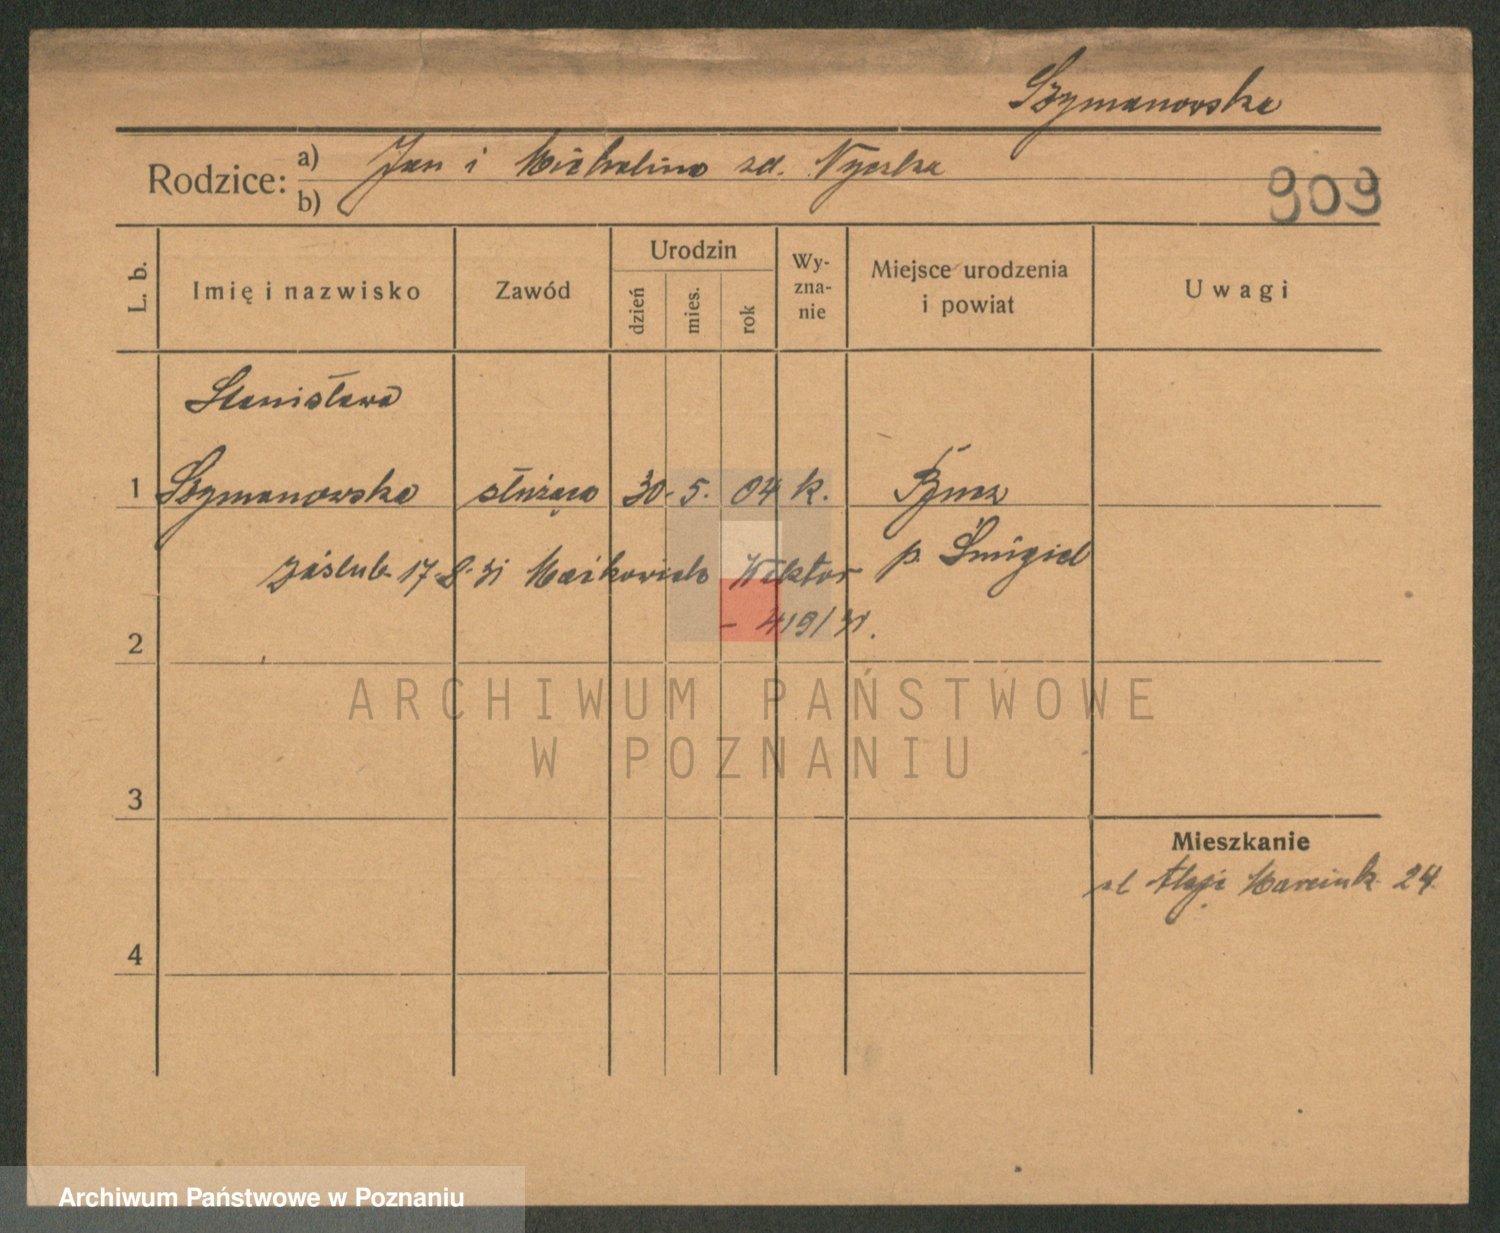 Szymanowska
Rodzice: a) Jan i Michalina zd.
b)
909
L. b. Imię i nazwisko Zawód Urodzin dzień mies. rok Wy-zna-nie Miejsce urodzenia i powiat Uwagi
Stanisława
1 Szymanowska służąca 30. 5. 04 k.
p. Śmigiel
zaślub. 17. 8. 31 Maćkowiak Wiktor
- 419/31.
2
ARCHIWUM PAŃSTWOWE
W POZNANIU
3
Mieszkanie
Aleje Marcink. 24
4
Archiwum Państwowe w Poznaniu